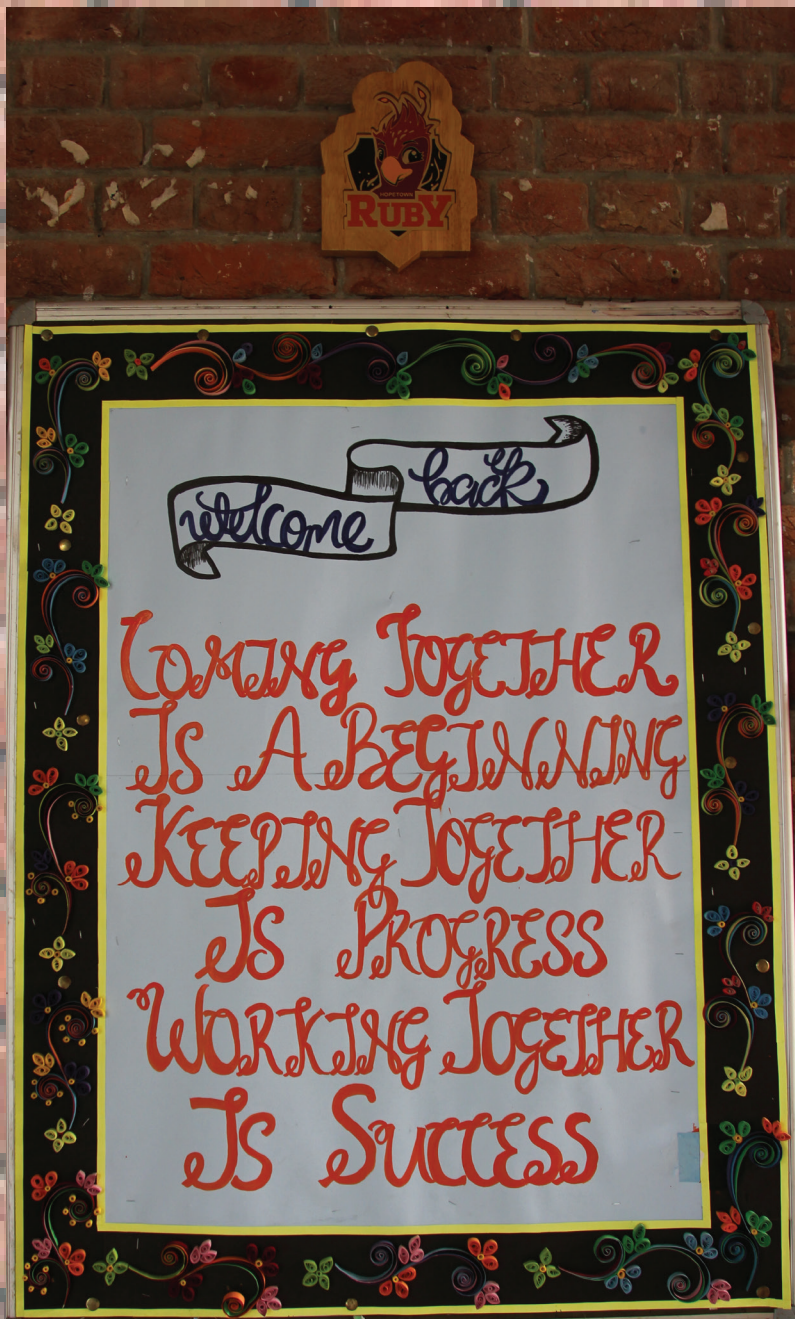 HOPETOWN
RUBY
welcome back
COMING TOGETHER
IS A BEGINNING
KEEPING TOGETHER
IS PROGRESS
WORKING TOGETHER
IS SUCCESS